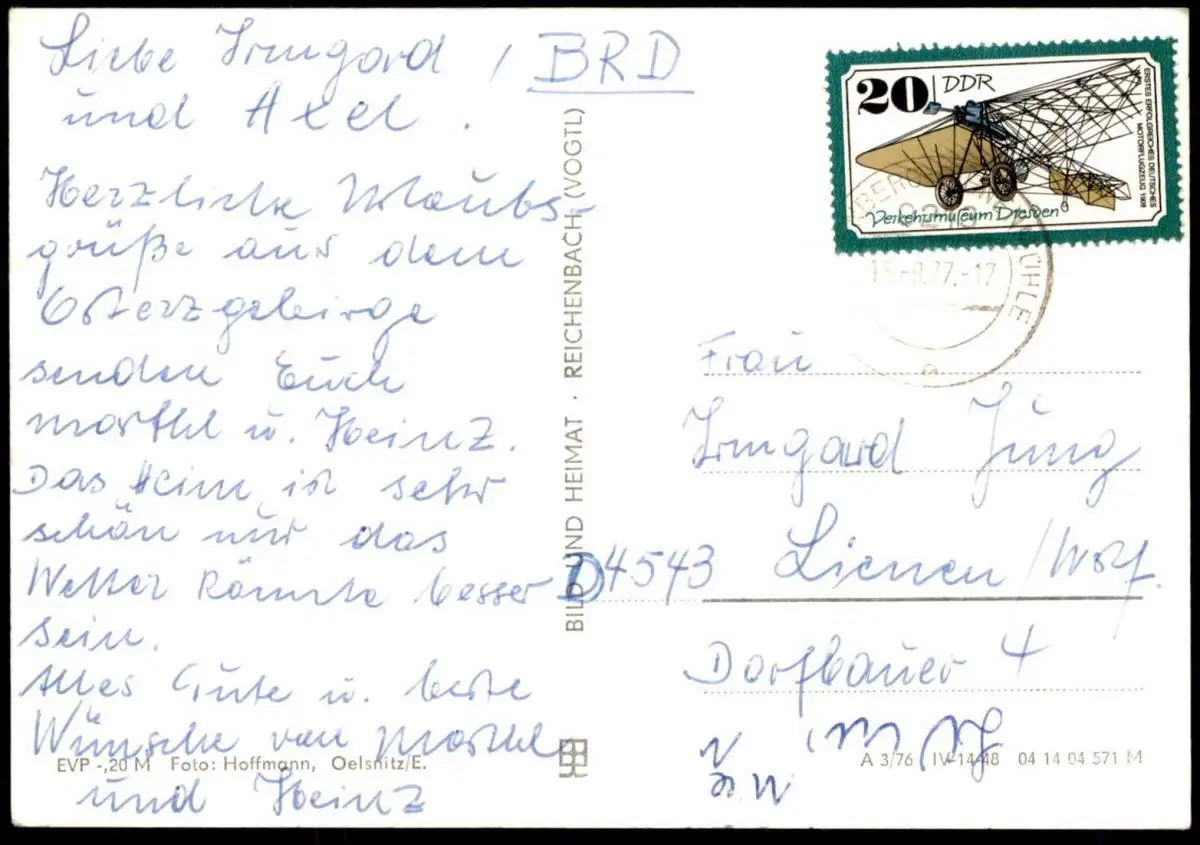 Liebe Irmgard / BRD
und Axel.
Herzliche Urlaubs-
grüße aus dem
Osterzgebirge
senden Euch
Marthl u. Heinz.
Das Heim ist sehr
schön nur das
Wetter könnte besser
sein.
Alles Gute u. beste
Wünsche von Marthl
und Heinz
EVP -,20 M Foto: Hoffmann, Oelsnitz/E.
BILD UND HEIMAT · REICHENBACH (VOGTL)
20 DDR
ERSTES ERFOLGREICHES DEUTSCHES
MOTORFLUGZEUG 1909
Verkehrsmuseum Dresden
77.-17
Frau
Irmgard Jung
D4543 Lienen/Wstf.
Dorfbauer 4
A 3/76 IV-14-48 04 14 04 571 M